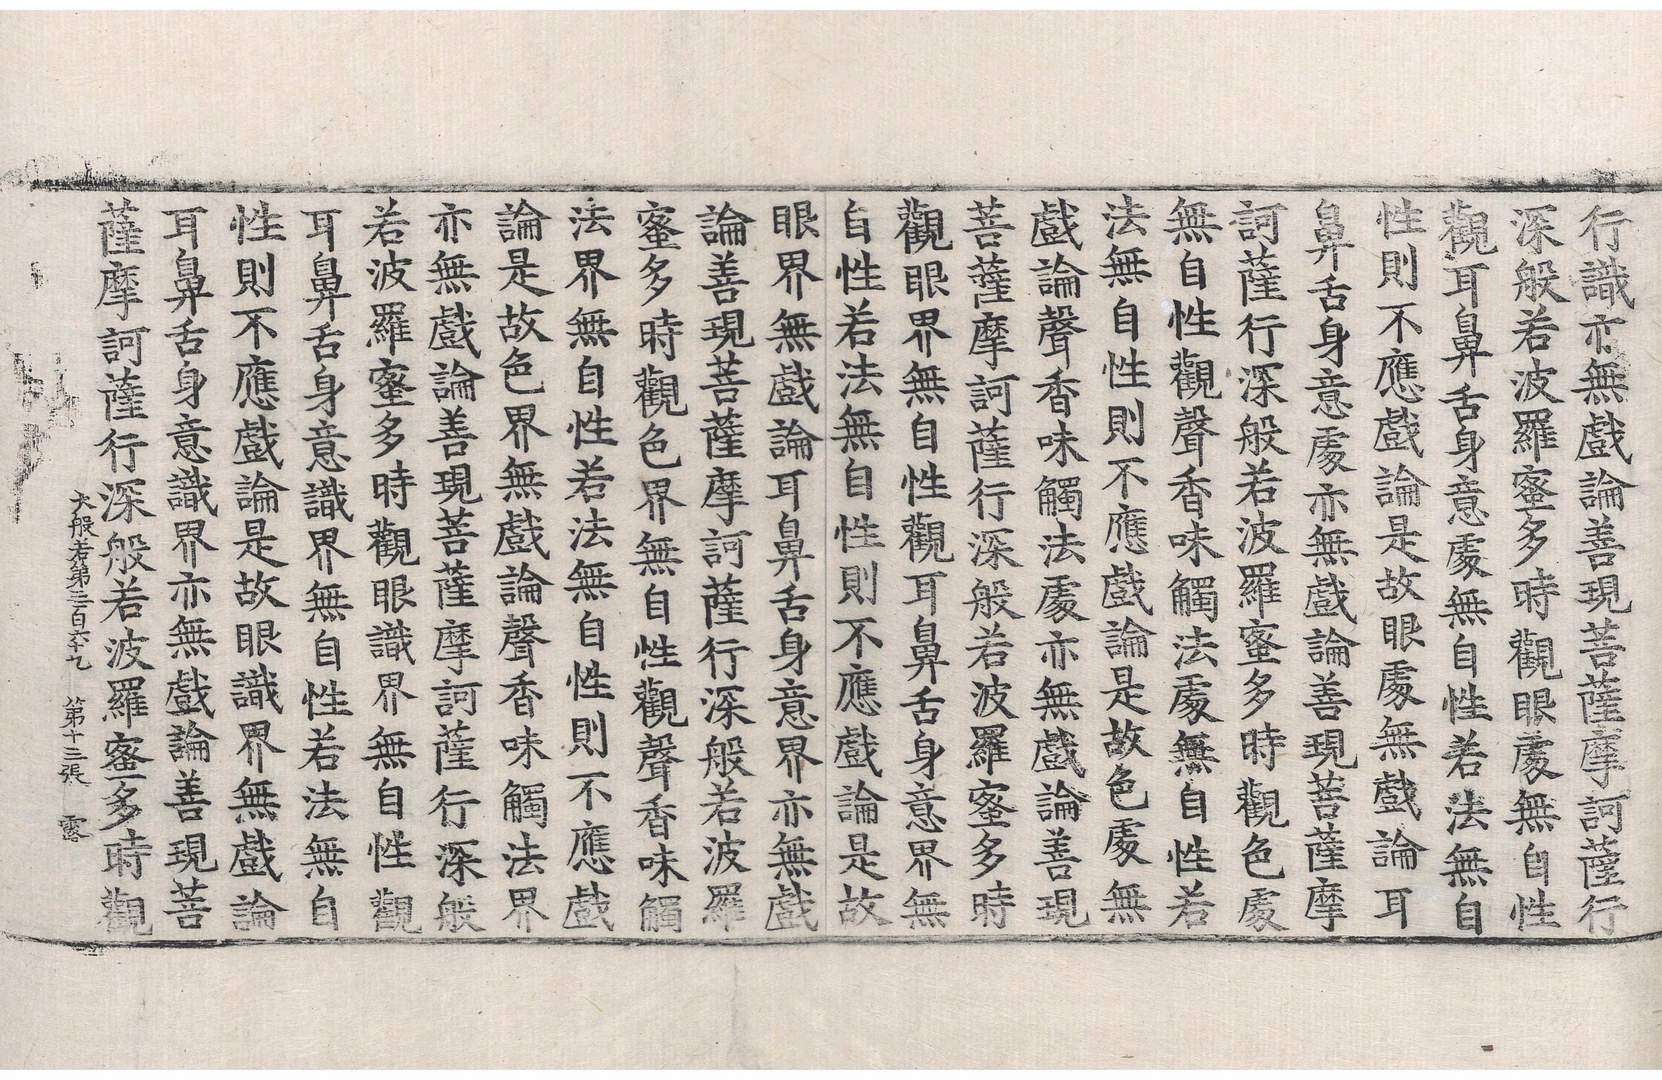 行識亦無戲論善現菩薩摩訶薩行
深般若波羅蜜多時觀眼處無自性
觀耳鼻舌身意處無自性若法無自
性則不應戲論是故眼處無戲論耳
鼻舌身意處亦無戲論善現菩薩摩
訶薩行深般若波羅蜜多時觀色處
無自性觀聲香味觸法處無自性若
法無自性則不應戲論是故色處無
戲論聲香味觸法處亦無戲論善現
菩薩摩訶薩行深般若波羅蜜多時
觀眼界無自性觀耳鼻舌身意界無
自性若法無自性則不應戲論是故
眼界無戲論耳鼻舌身意界亦無戲
論善現菩薩摩訶薩行深般若波羅
蜜多時觀色界無自性觀聲香味觸
法界無自性若法無自性則不應戲
論是故色界無戲論聲香味觸法界
亦無戲論善現菩薩摩訶薩行深般
若波羅蜜多時觀眼識界無自性觀
耳鼻舌身意識界無自性若法無自
性則不應戲論是故眼識界無戲論
耳鼻舌身意識界亦無戲論善現菩
薩摩訶薩行深般若波羅蜜多時觀
大般若第三百六十九 第十三張 露